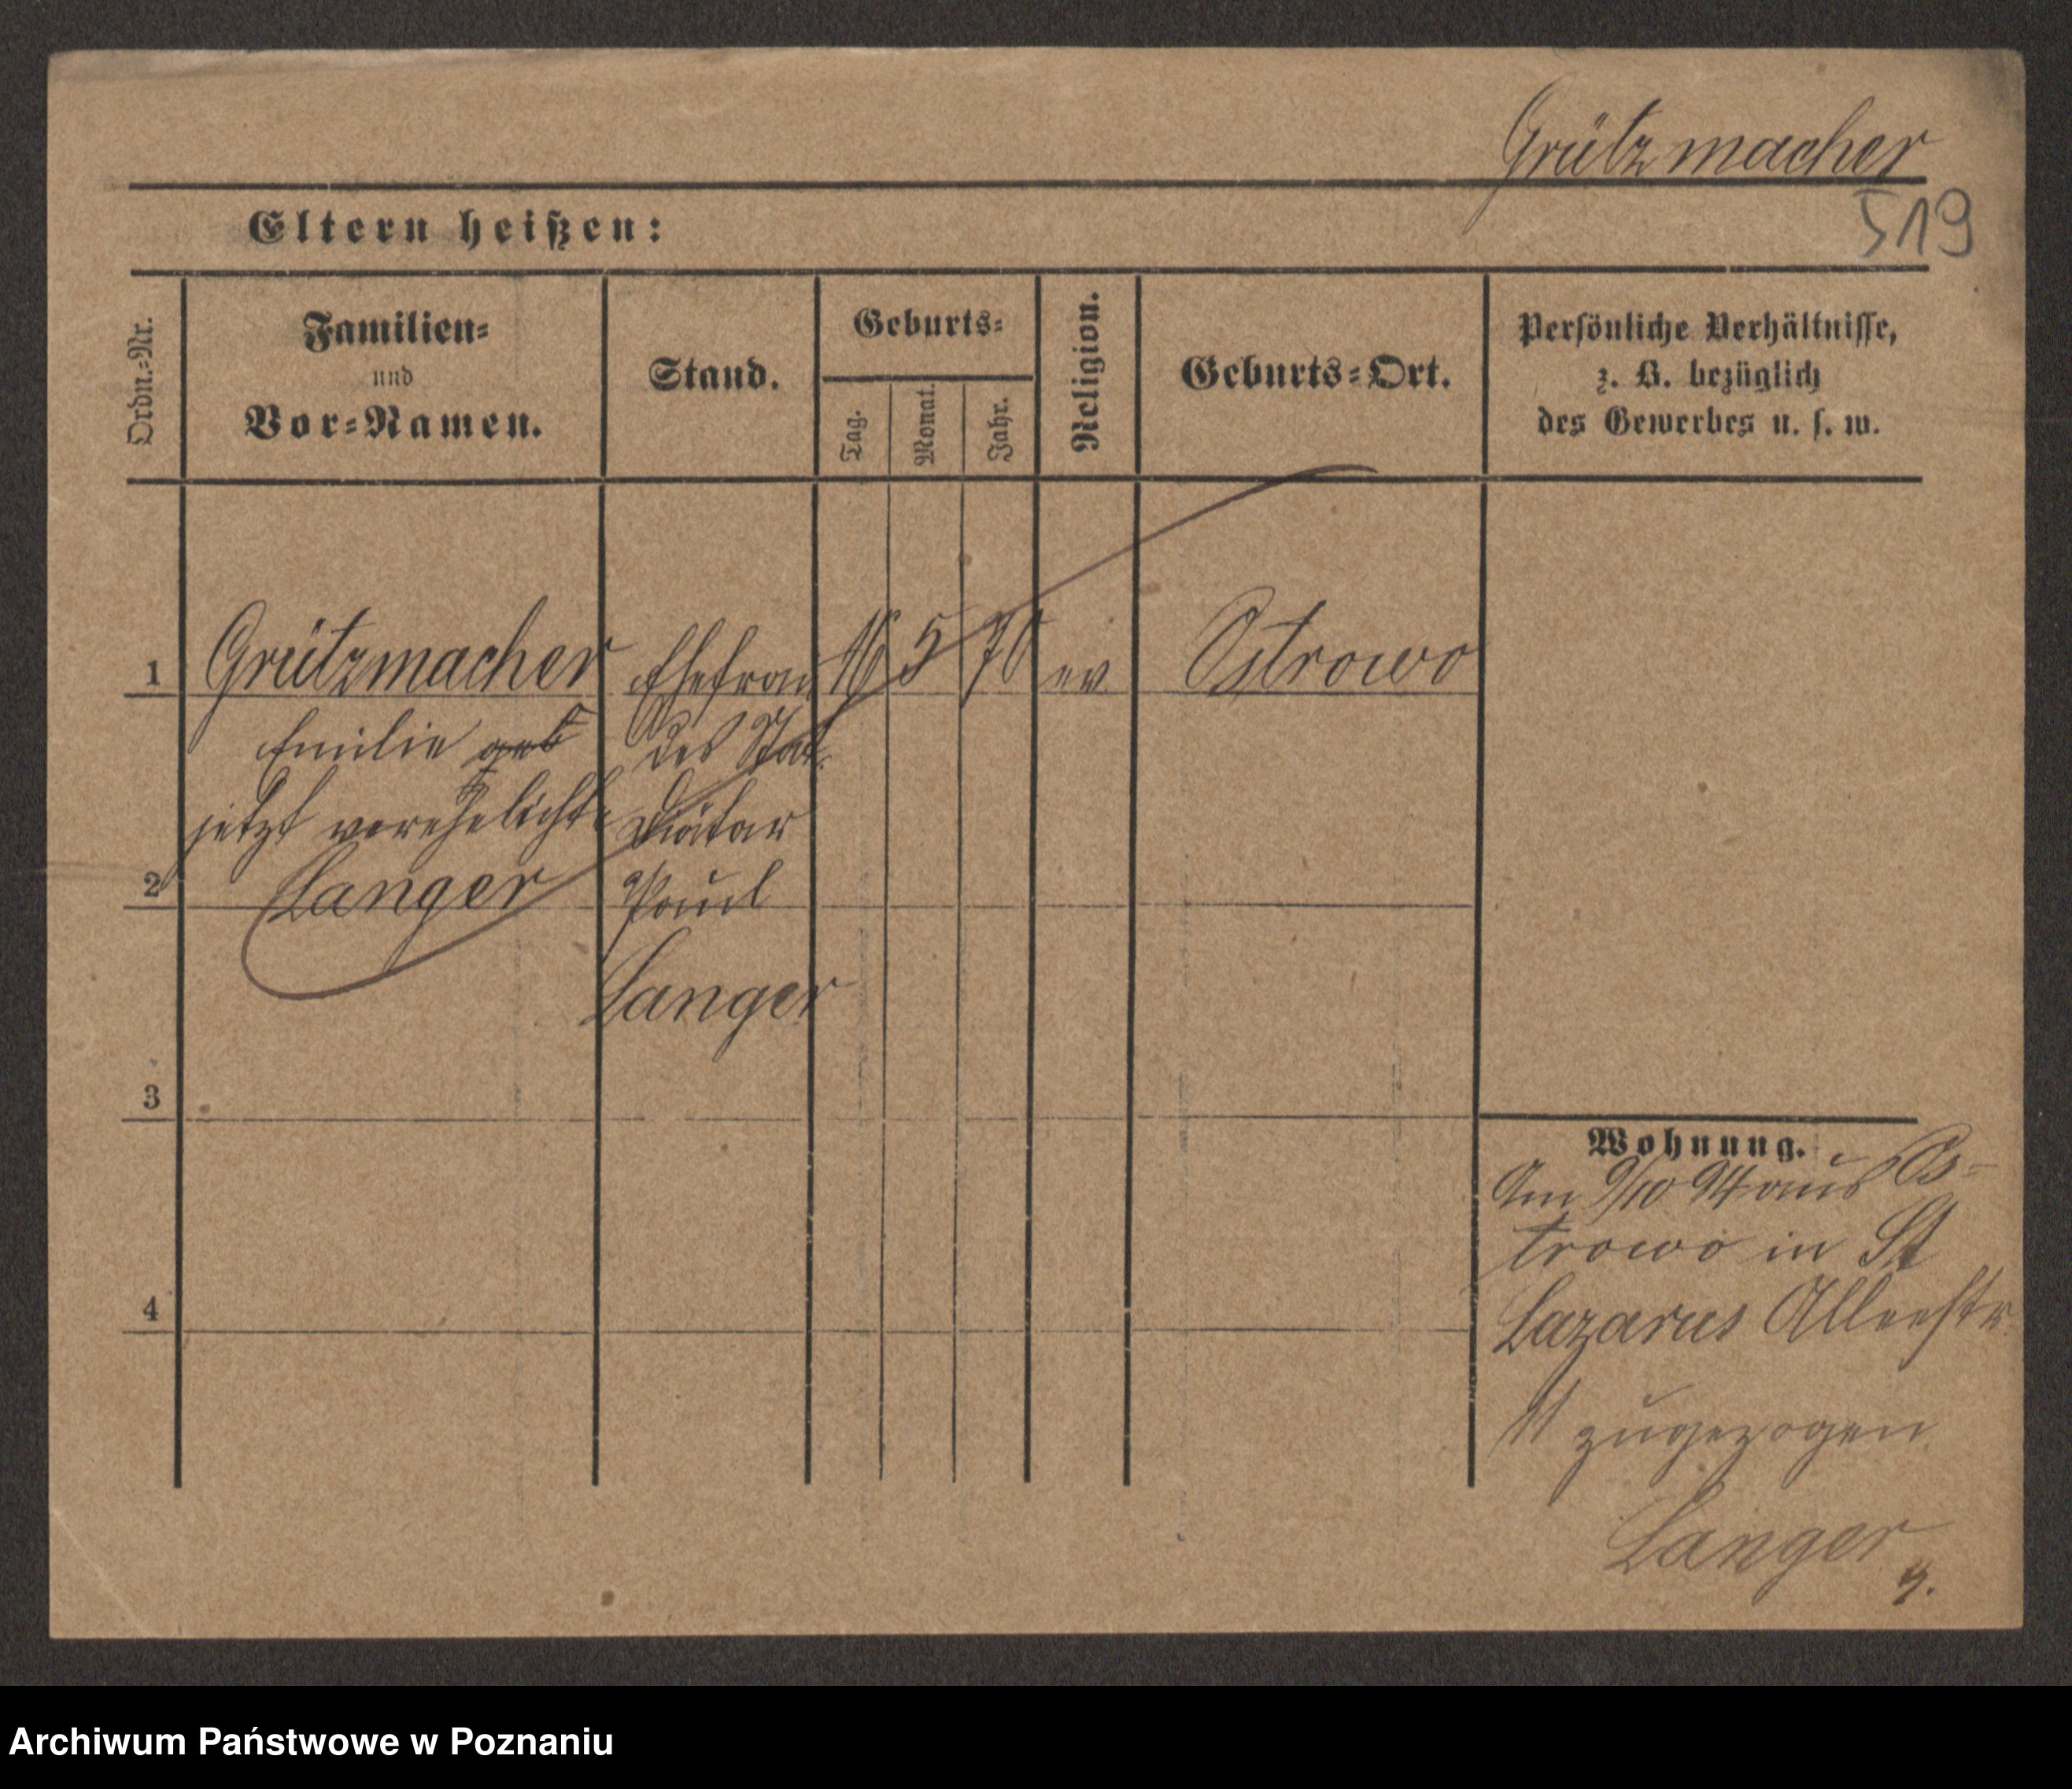 Grützmacher
519
Eltern heißen:
Ordn.=Nr.
Familien=
und
Vor=Namen.
Stand.
Geburts=
Tag.
Monat.
Jahr.
Religion.
Geburts=Ort.
Persönliche Verhältnisse,
z. B. bezüglich
des Gewerbes u. s. w.
1 Grützmacher Ehefrau 16 5 70 ev Ostrowo
Emilie geb des Stat.
jetzt verehelichte Diätar
2 Langer Paul
Langer
3
4
Wohnung.
Am 9/10 94 aus Os=
trowo in St
Lazarus Alleestr.
11 zugezogen
Langer
Archiwum Państwowe w Poznaniu